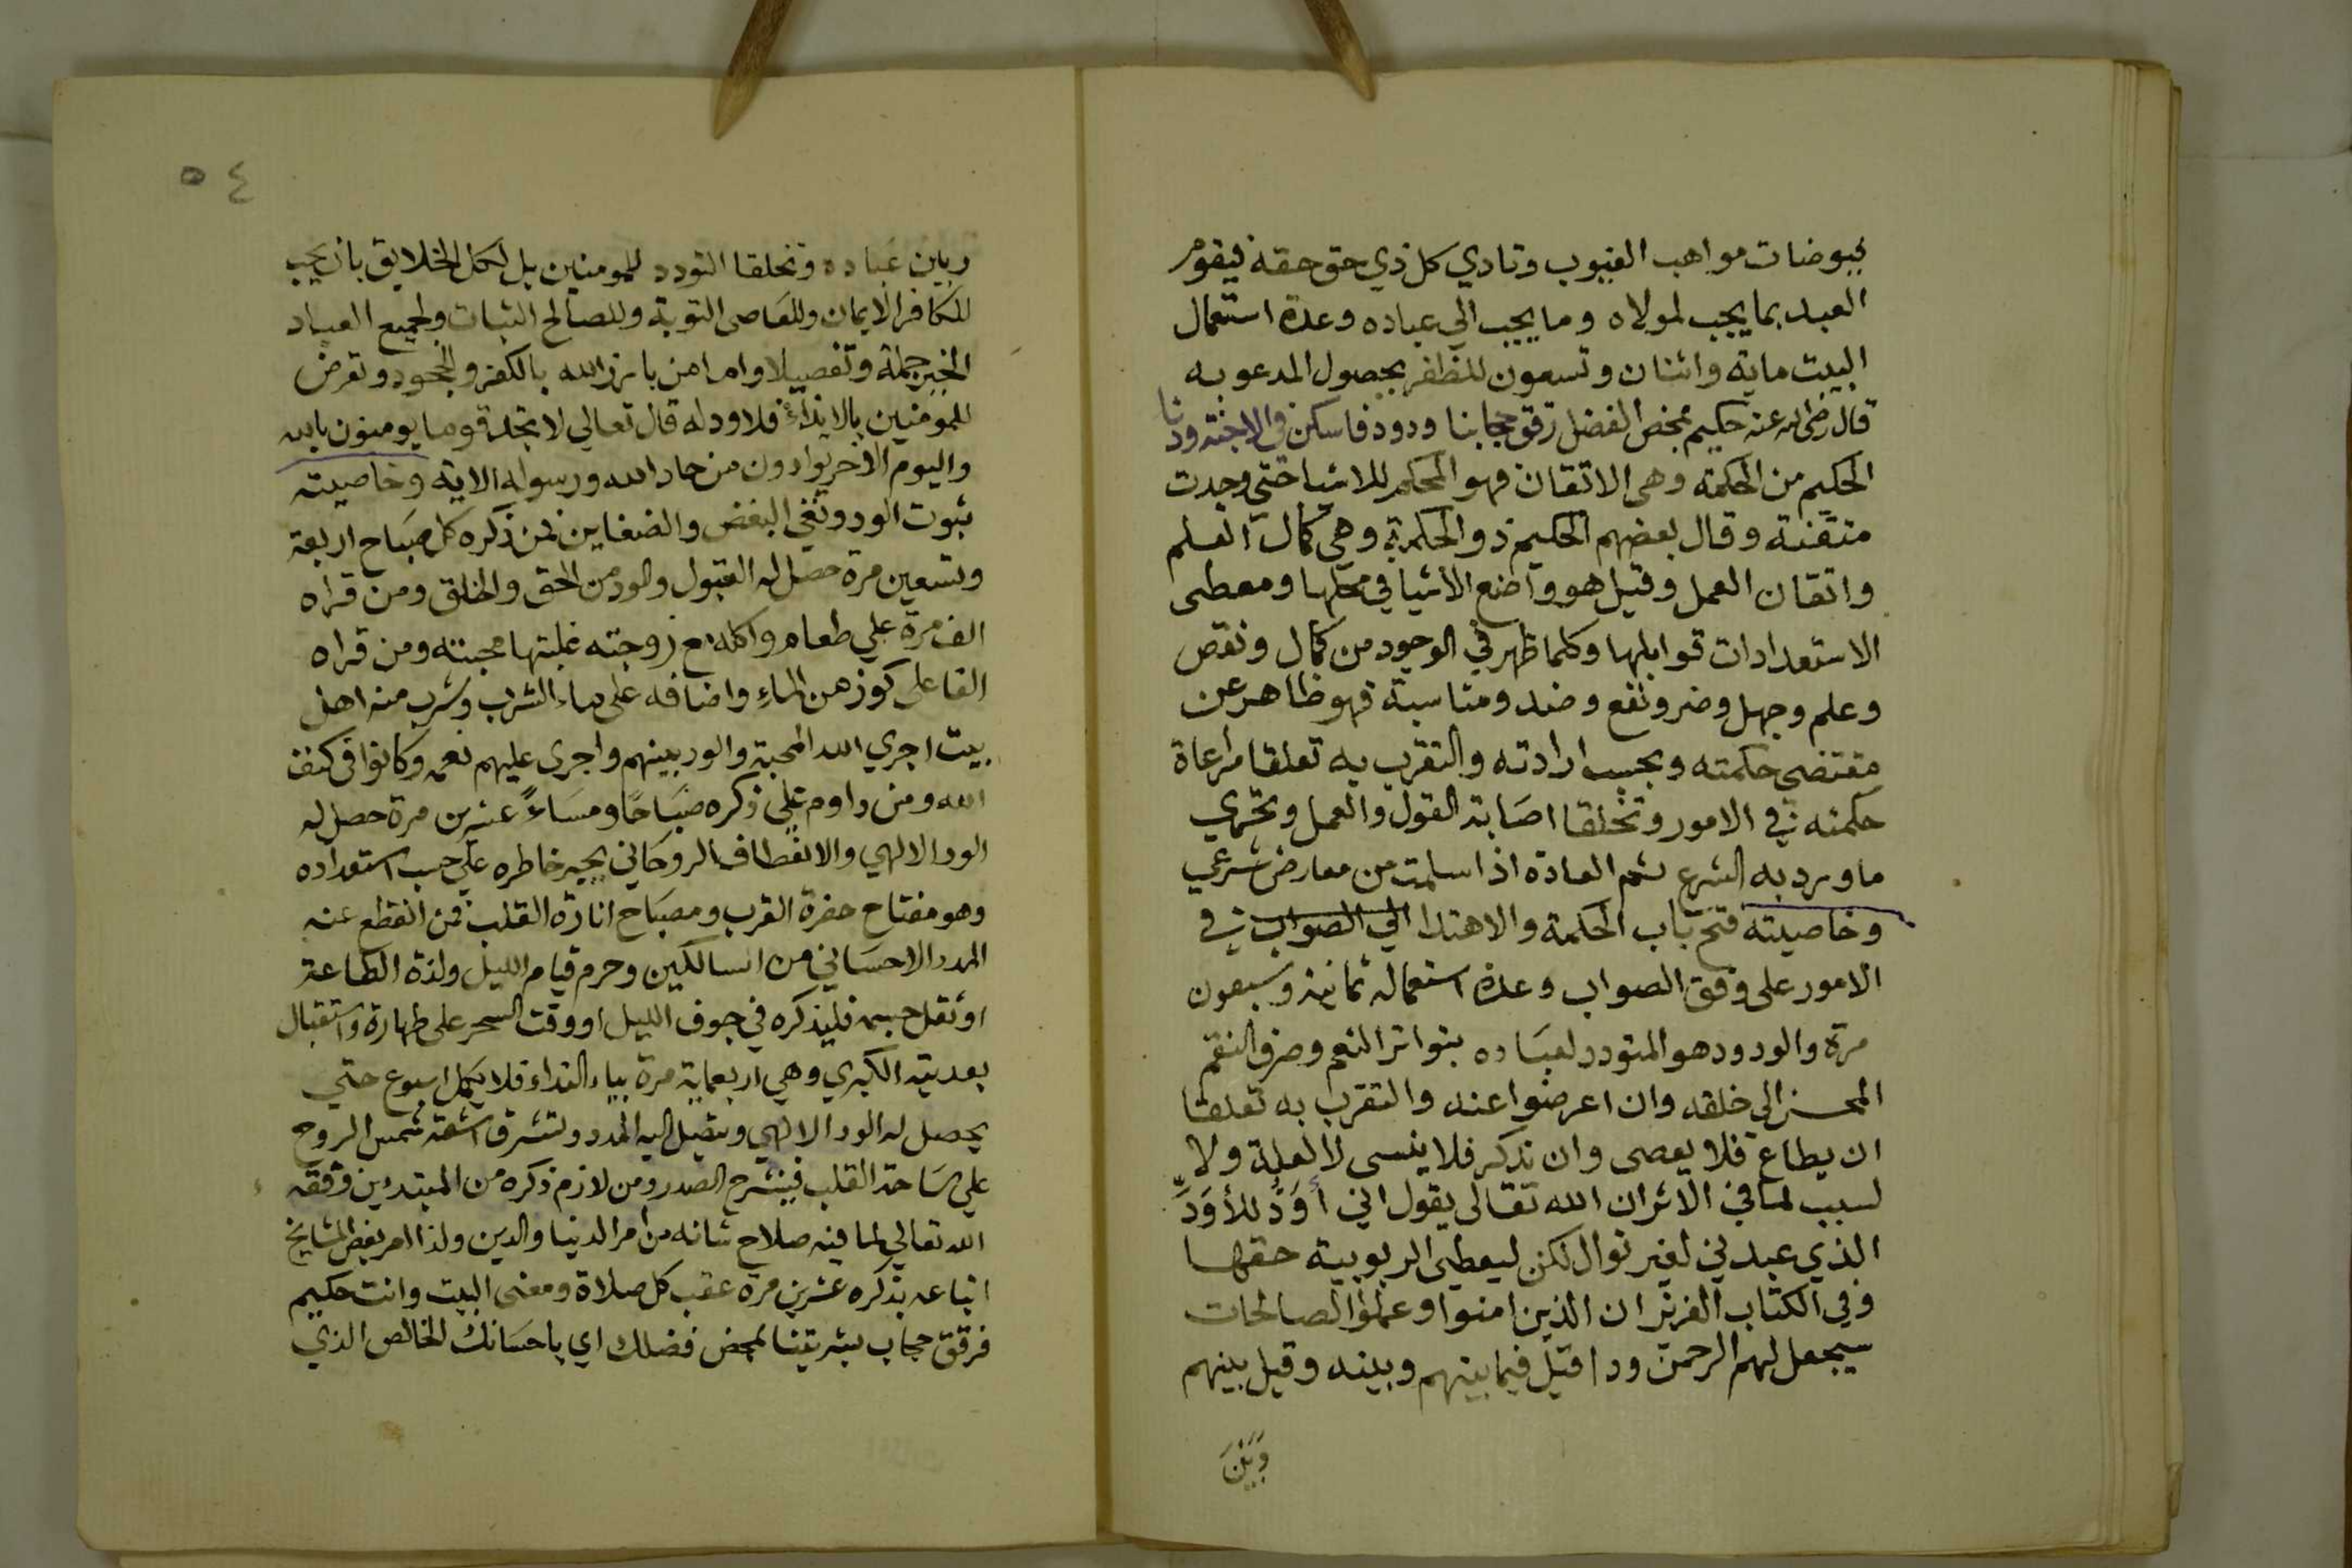 بيوضات مواهب الغيوب وتادي كل ذي حق حقه فيقوم
العبد بما يجب لمولاه وما يجب الي عباده وعدة استعمال
البيت ماية واثنان وتسعون للظفر بحصول المدعو به
قال رضي الله عنه حكيم بمحض الفضل رقق حجابنا ودود فاسكن في الاجنة ودنا
الحكيم من الحكمة وهي الاتقان فهو المحكم للاشيا حتي وجدت
متقنة وقال بعضهم الحكيم ذو الحكمة وهي كمال العلم
واتقان العمل وقيل هو واضع الاشيا في محلها ومعطي
الاستعدادات قوابلها وكلما ظهر في الوجود من كمال ونقص
وعلم وجهل وضر ونفع وضد ومناسبة فهو ظاهر عن
مقتضى حكمته وبحسب ارادته والتقرب به تعلقا مراعاة
حكمته في الامور وتخلقا اصابة القول والعمل وتحري
ما ورد به الشرع ثم العادة اذا سلمت من معارض شرعي
وخاصيته فتح باب الحكمة والاهتدا الي الصواب في
الامور على وفق الصواب وعدة استعماله ثمانية وسبعون
مرة والودود هو المتودد لعباده بتواتر النعم وصرف النقم
المحسن الى خلقه وان اعرضوا عنه والتقرب به تعلقا
ان يطاع فلا يعصى وان تذكر فلا ينسى لا لعلة ولا
لسبب لما في الاثر ان الله تعالى يقول اني أَوَدُّ للأَوَدِّ
الذي عبدني لغير نوال لكن ليعطي الربوبية حقها
وفي الكتاب العزيز ان الذين امنوا وعملوا الصالحات
سيجعل لهم الرحمن ودا قيل فيما بينهم وبينه وقيل بينهم
وَبَيْنَ
٥٤
وبين عباده وتخلقا التودد للمومنين بل لكل الخلايق بان يحب
للكافر الايمان وللعاصي التوبة وللصالح الثبات ولجميع العباد
الخير جملة وتفصيلا واما من بارز الله بالكفر والجحود وتعرض
للمومنين بالايذاء فلا ود له قال تعالي لا تجد قوما يومنون بالله
واليوم الاخر يوادون من حاد الله ورسوله الاية وخاصيته
ثبوت الود ونفي البغض والضغاين فمن ذكره كل صباح اربعة
وتسعين مرة حصل له القبول والود من الحق والخلق ومن قراه
الف مرة علي طعام واكله مع زوجته غلبتها محبته ومن قراه
الفا على كوز من الماء واضافه على ماء الشرب وشرب منه اهل
بيت اجري الله المحبة والود بينهم واجري عليهم نعمه وكانوا في كنف
الله ومن داوم علي ذكره صباحًا ومساءً عشرين مرة حصل له
الود الالهي والانعطاف الروحاني بجبر خاطره علي حسب استعداده
وهو مفتاح حضرة القرب ومصباح انارة القلب فمن انقطع عنه
المدد الاحساني من السالكين وحرم قيام الليل ولذة الطاعة
او ثقل جسمه فليذكره في جوف الليل او وقت السحر على طهارة واستقبال
بعديته الكبري وهي اربعماية مرة بياء النداء فلا يكمل اسبوع حتي
يحصل له الود الالهي ويتصل اليه المدد وتشرق اشعة شمس الروح
علي ساحة القلب فينشرح الصدر ومن لازم ذكره من المبتدين وفقه
الله تعالي لما فيه صلاح شانه من امر الدنيا والدين ولذا امر بعض المشايخ
اتباعه بذكره عشرين مرة عقب كل صلاة ومعنى البيت وانت حكيم
فرقق حجاب بشريتنا بمحض فضلك اي باحسانك الخالص الذي